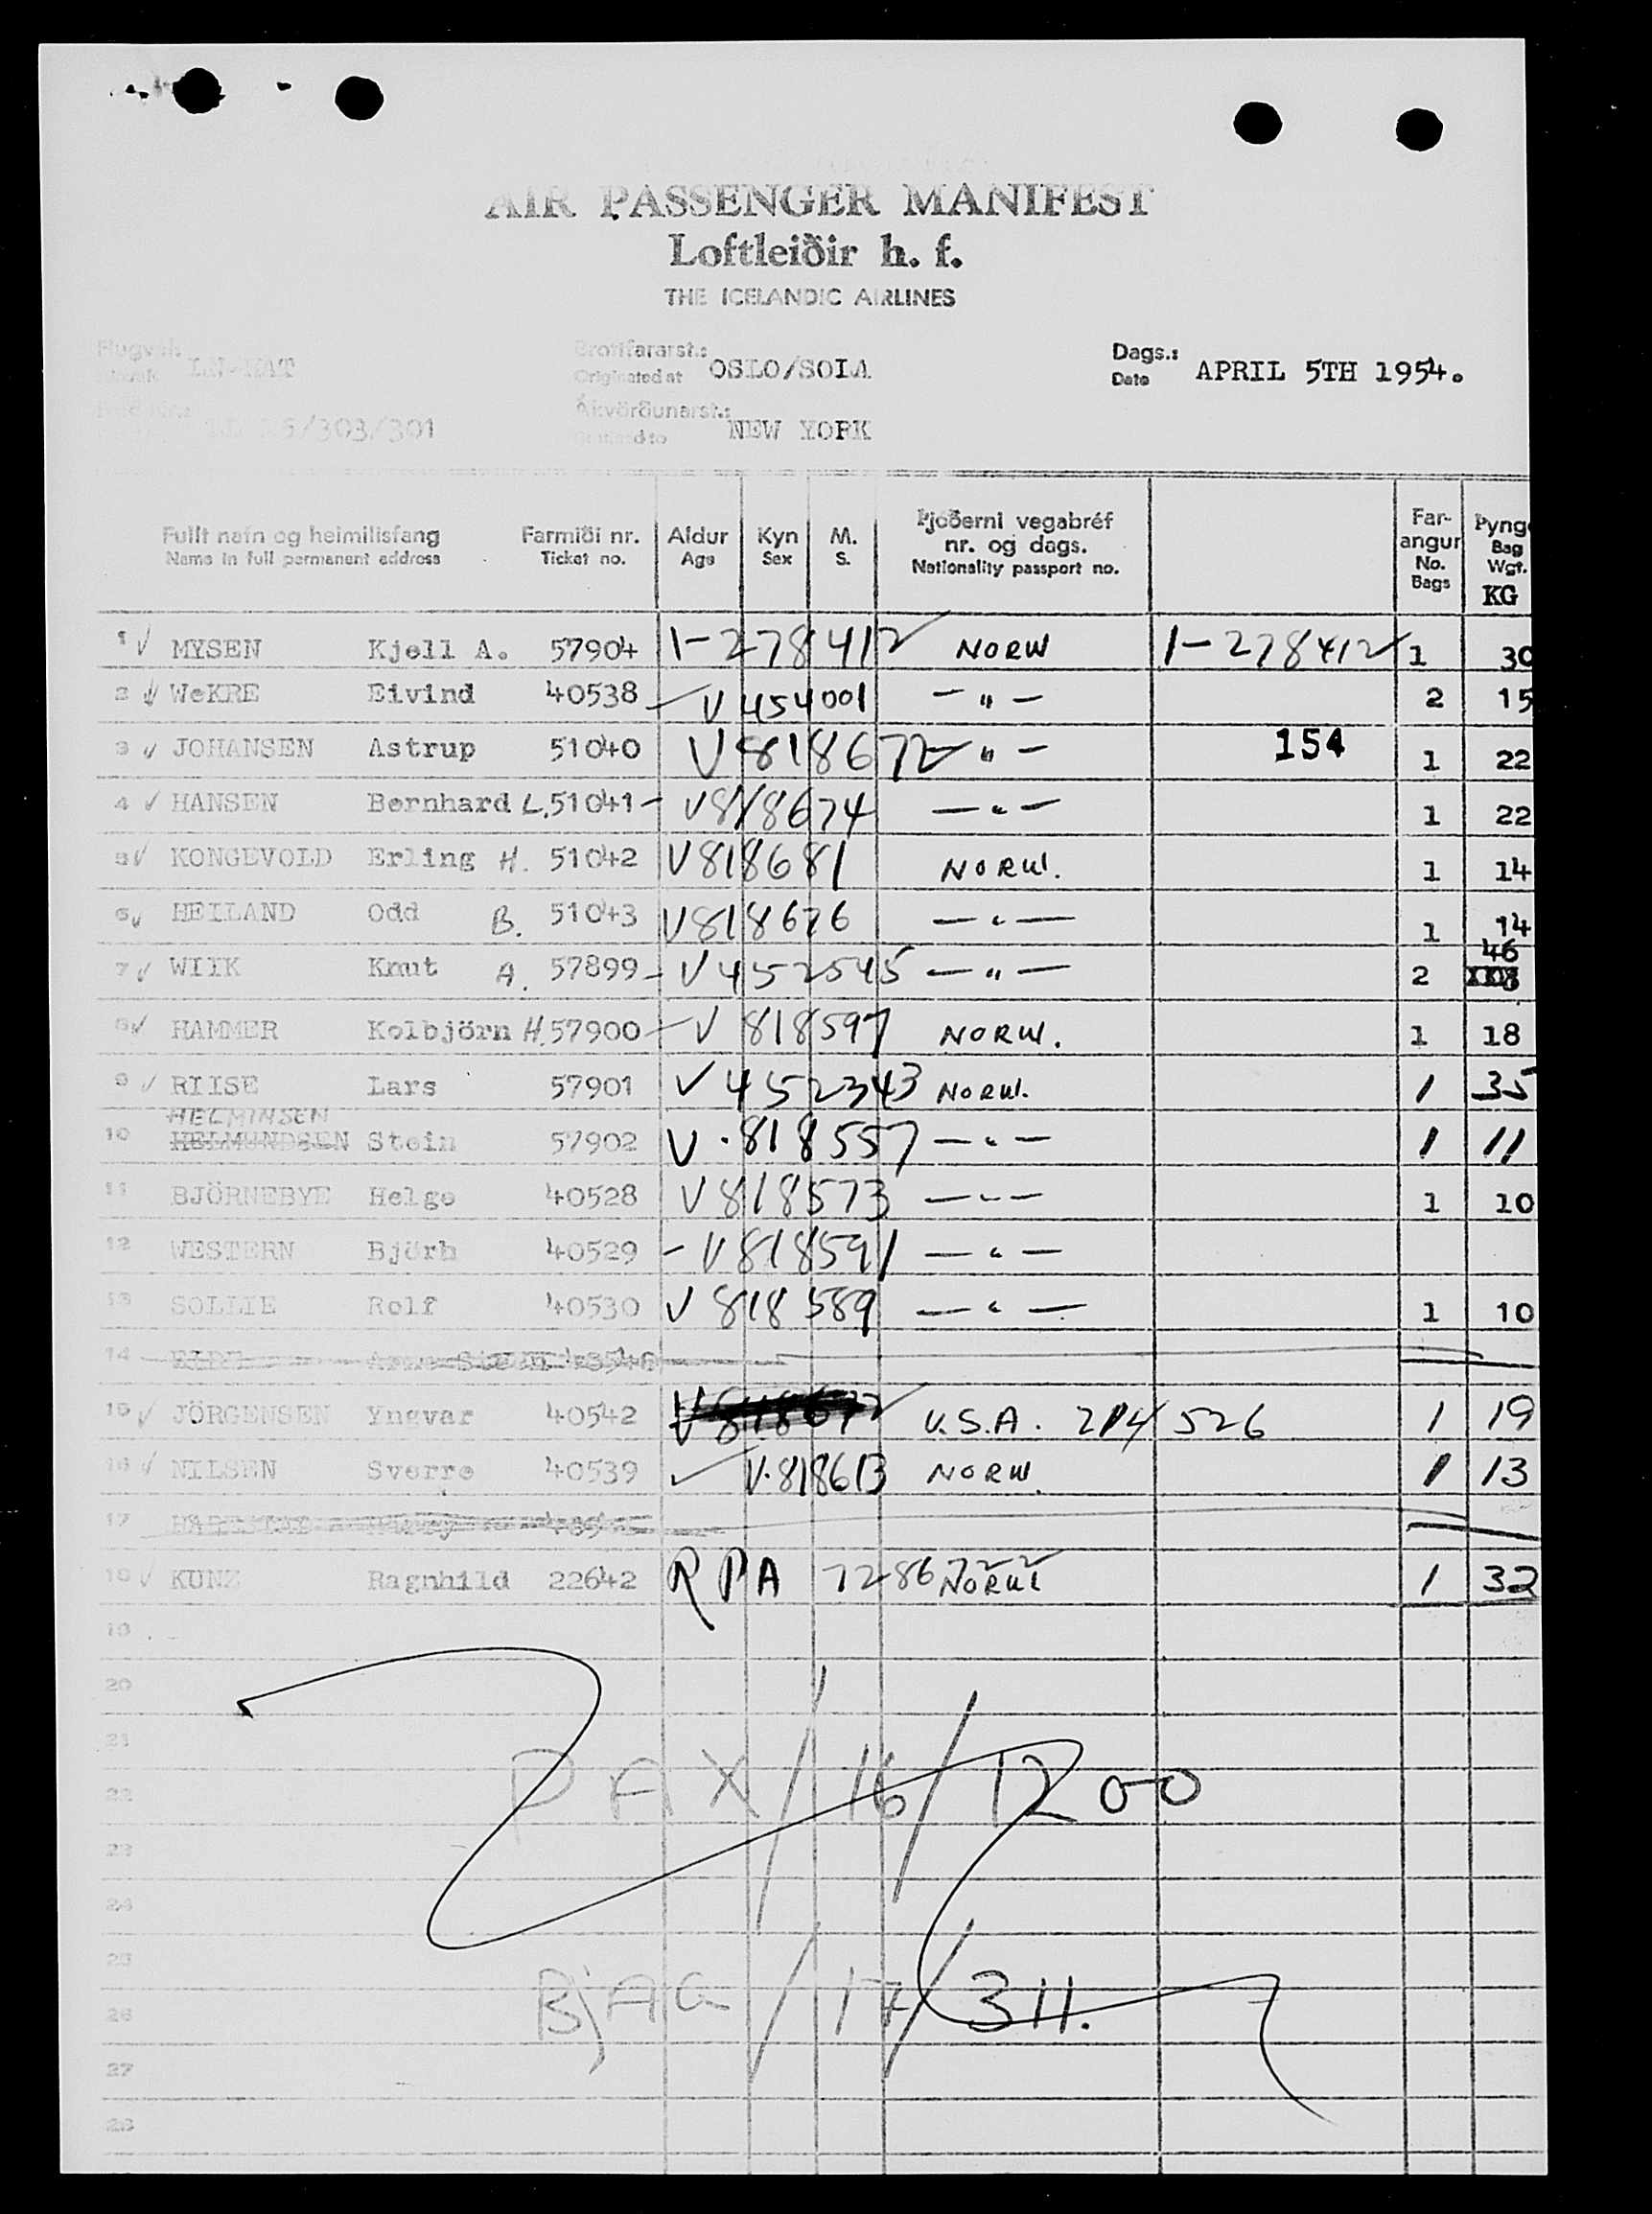 AIR PASSENGER MANIFEST
Loftleiðir h. f.
THE ICELANDIC AIRLINES
Brottfararst.: Originated at OSLO/SOLA
Dags.: Date APRIL 5TH 1954.
Ákvörðunarst.: NEW YORK
/303/301
Fullt nafn og heimilisfang Farmiði nr. Aldur Kyn M. Þjóðerni vegabréf nr. og dags. Far-angur Þyng
Name in full permanent address Ticket no. Age Sex S. Nationality passport no. No. Bags Bag Wgt. KG
1 MYSEN Kjell A. 57904 1-278412 NORW 1-278412 1 30
2 WeKRE Eivind 40538 V 454001 - " - 2 15
3 JOHANSEN Astrup 51040 V 818672 - " - 154 1 22
4 HANSEN Bernhard L. 51041 - V818674 - " - 1 22
5 KONGEVOLD Erling H. 51042 V818681 NORW. 1 14
6 HEILAND Odd B. 51043 V818676 - " - 1 14
7 WIIK Knut A. 57899 - V452545 - " - 2 46
8 HAMMER Kolbjörn H. 57900 - V 818597 NORW. 1 18
9 RIISE Lars 57901 V 452343 NORW. 1 35
HELMINSEN
10 HELMUNDSEN Stein 57902 V.818557 - " - 1 11
11 BJÖRNEBYE Helge 40528 V818573 - " - 1 10
12 WESTERN Björh 40529 - V818591 - " -
13 SOLLIE Rolf 40530 V 818589 - " - 1 10
14
15 JÖRGENSEN Yngvar 40542 V818672 U.S.A. 214526 1 19
16 NILSEN Sverre 40539 V.818613 NORW. 1 13
17
18 KUNZ Ragnhild 22642 R P A NORW 1 32
19
20
21
22
PAX/16/1200
23
24
25
26
BAG/17/311.
27
28